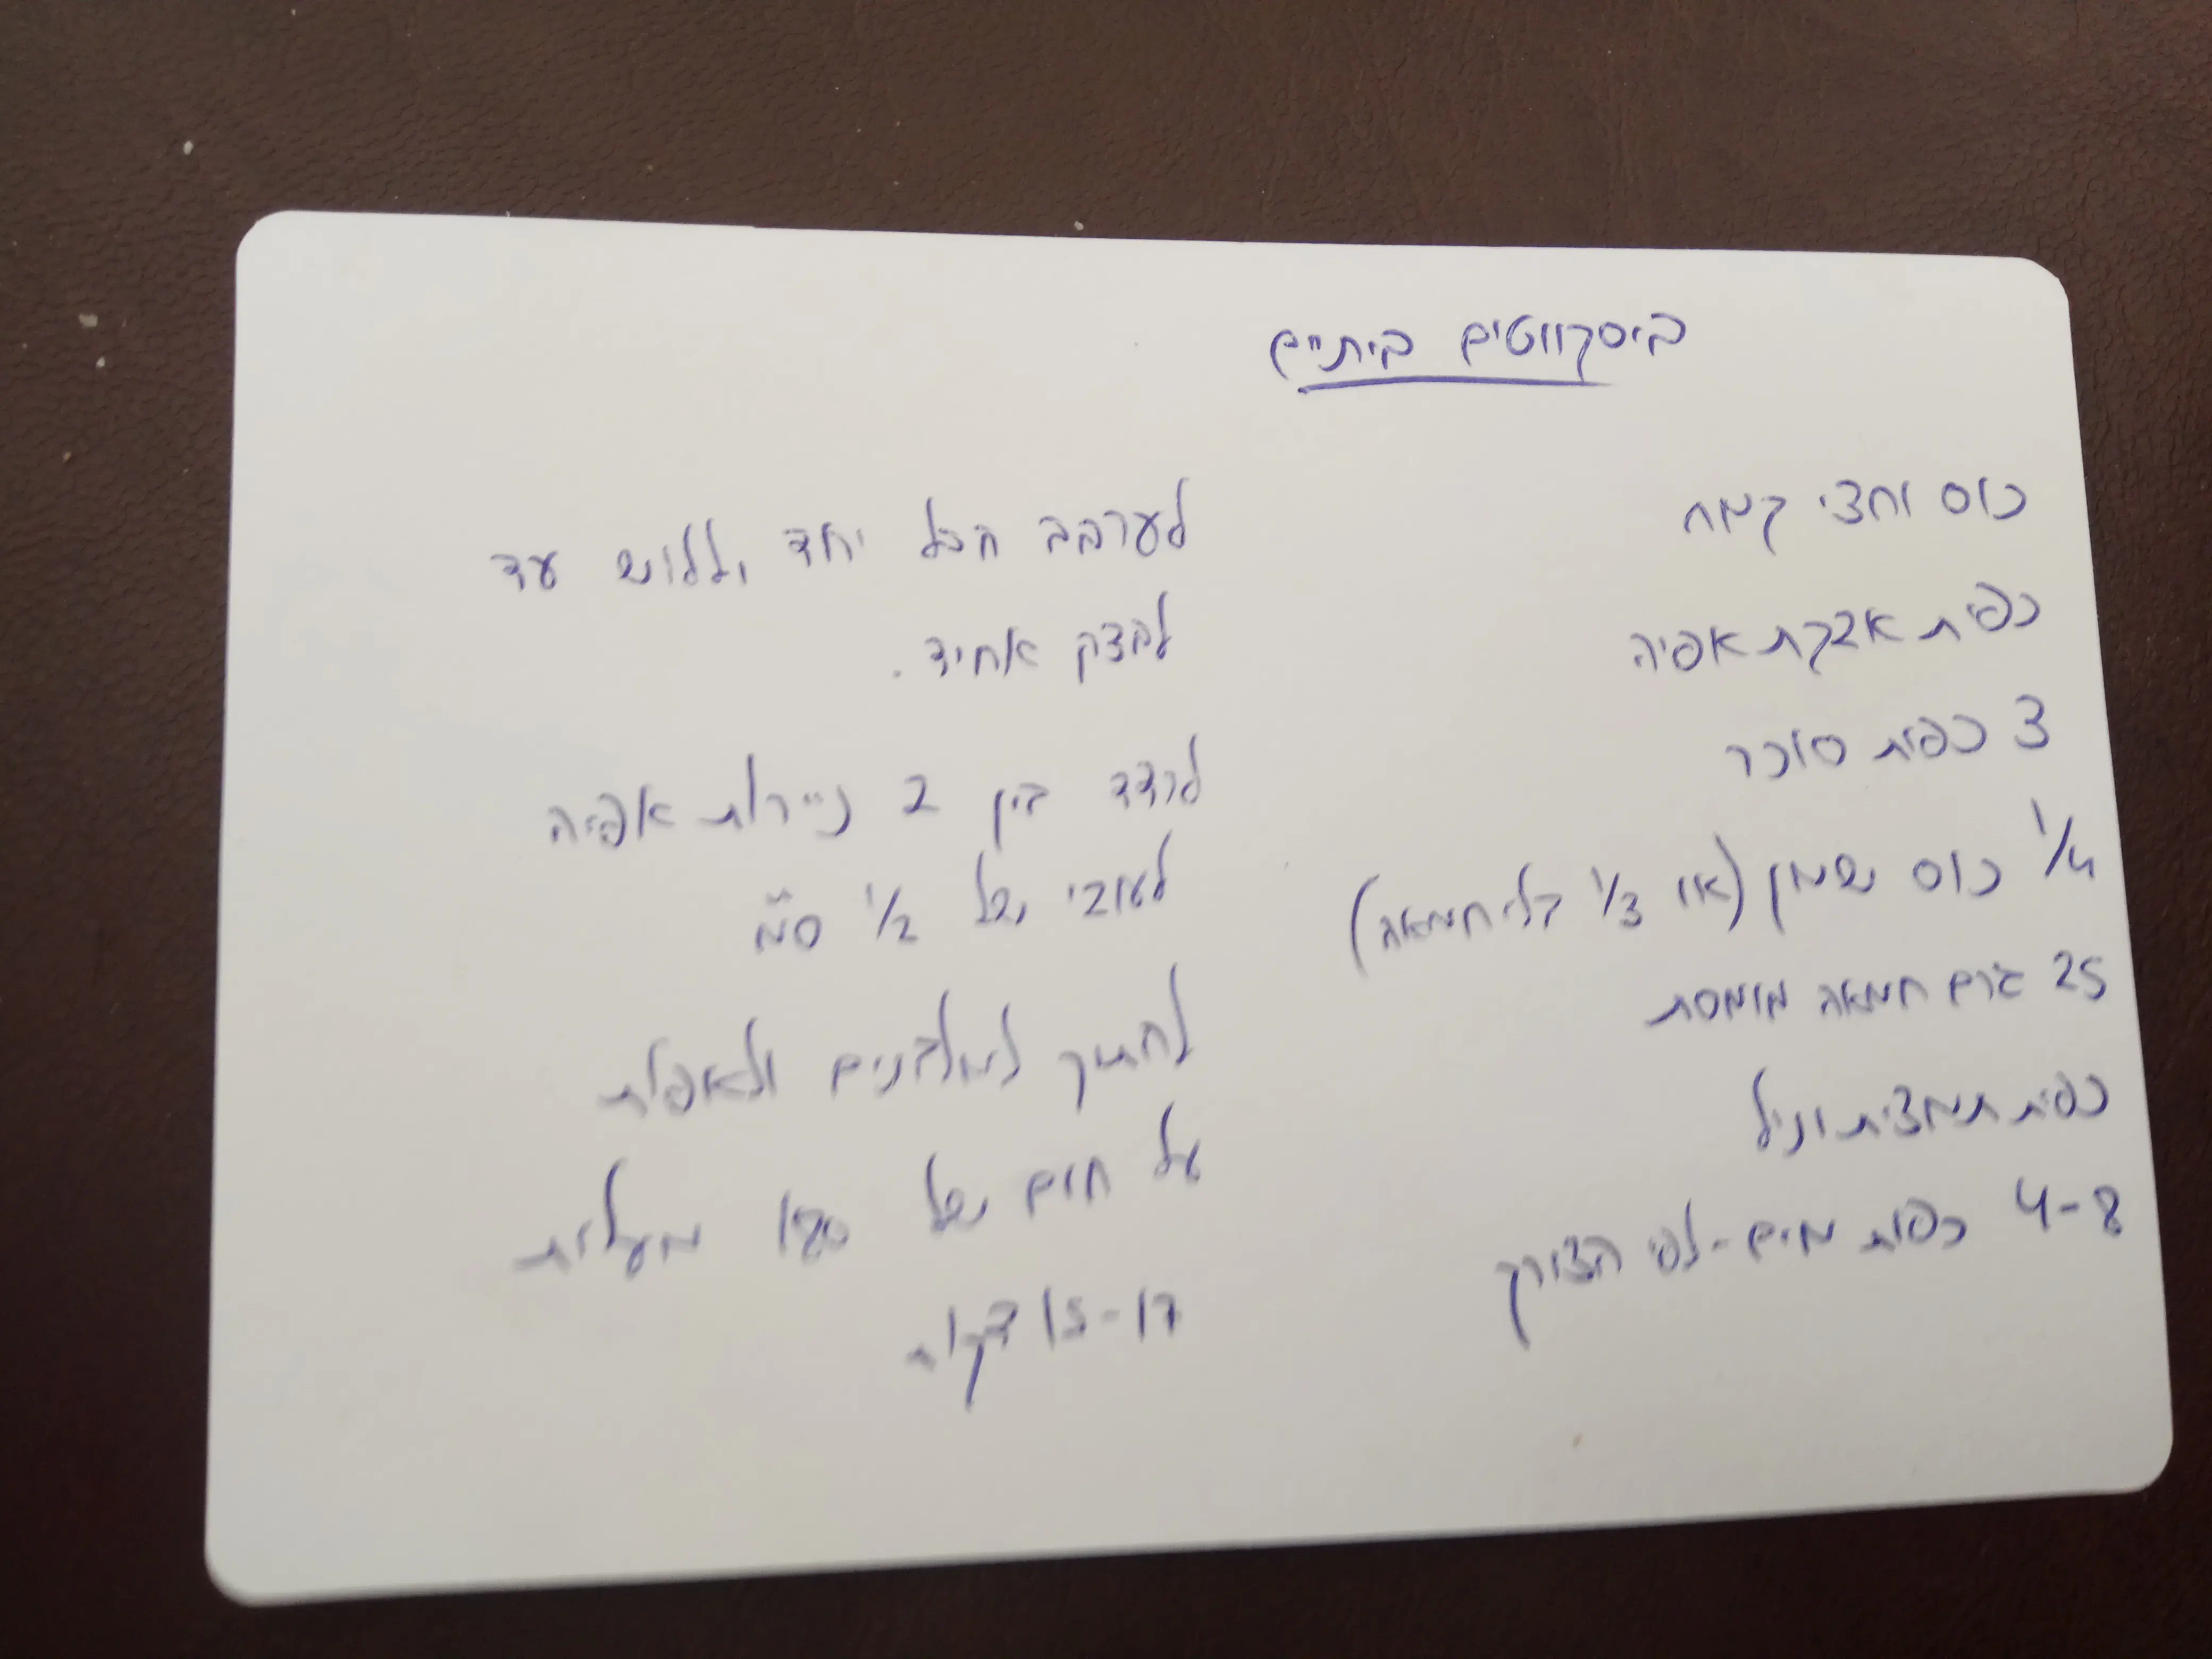 ביסקוויטים ביתיים
כוס וחצי קמח
כפית אבקת אפיה
3 כפות סוכר
1/4 כוס שמן (או 1/3 בלי חמאה)
25 גרם חמאה מומסת
כפית תמצית וניל
4-8 כפות מים - לפי הצורך
לערבב הכל יחד וללוש עד
לבצק אחיד.
לרדד בין 2 ניירות אפיה
לעובי של 1/2 ס"מ
לחתוך למלבנים ולאפות
על חום של 180 מעלות
15-17 דקות